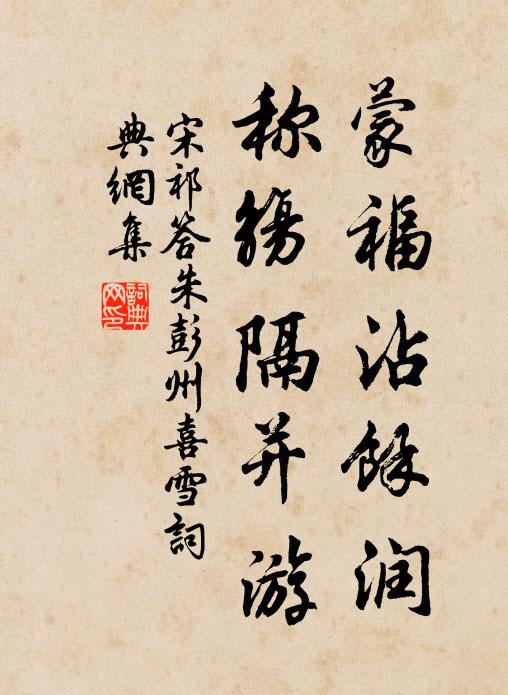 蒙福沾馀润
称觞隔并游
宋祁答朱彭州喜雪詞
典網集
詞典
网印